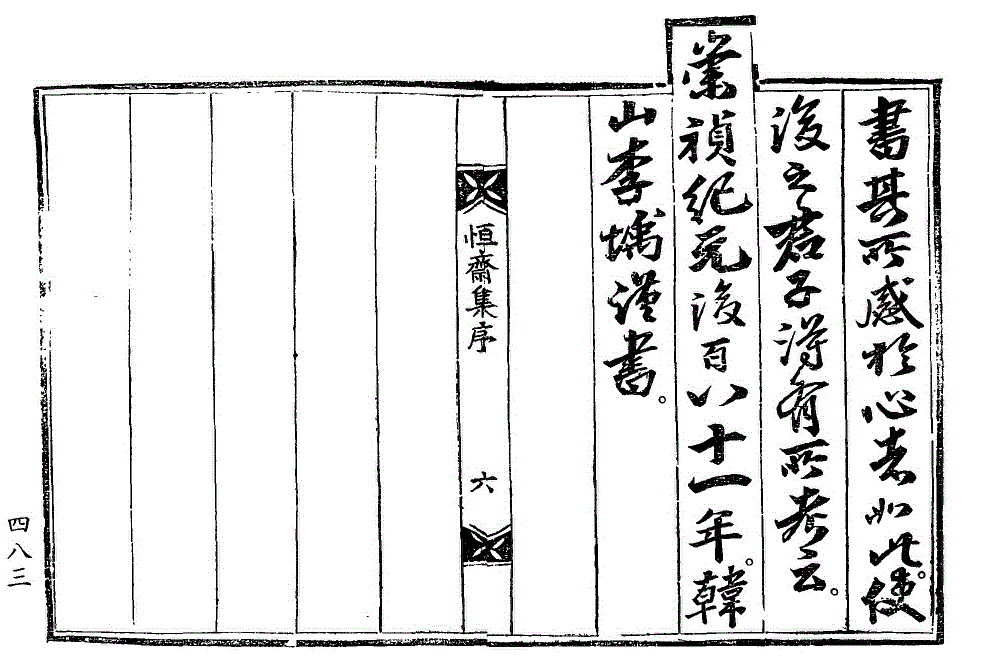 書其所感於心者如此。使
後之君子得有所考云。
崇禎紀元後百八十一年。韓
山李㙖謹書。
恒齋集序 六
四八三